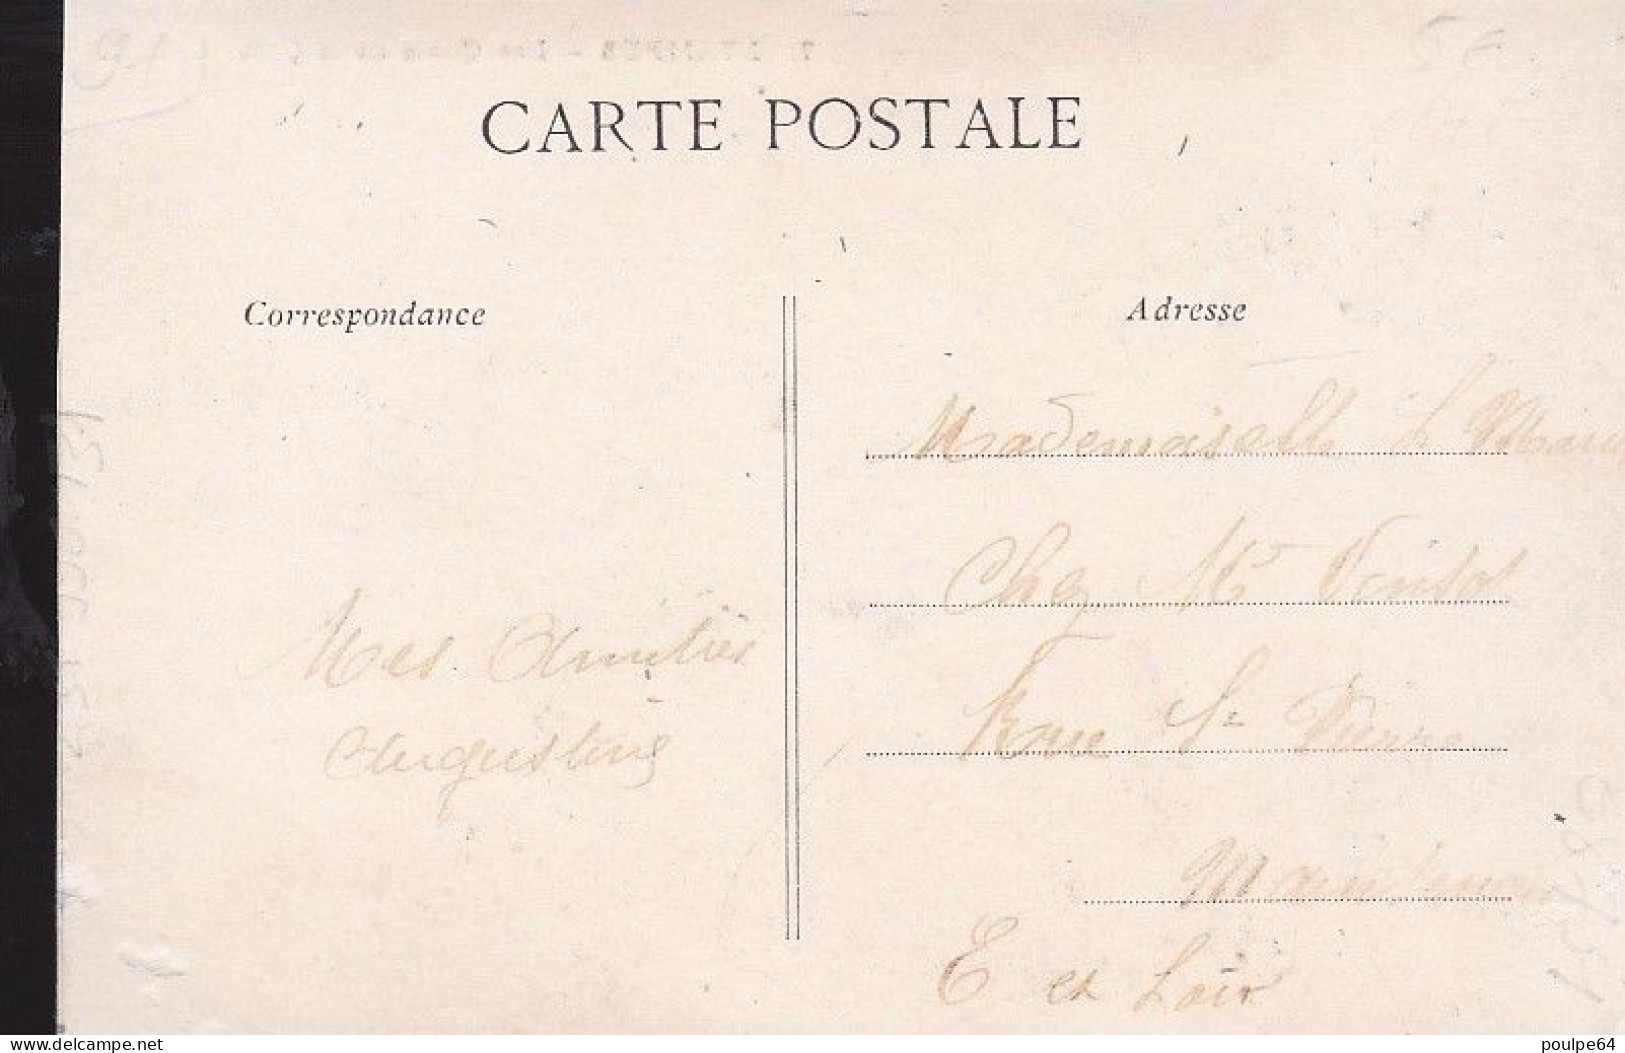 CARTE POSTALE
Correspondance
Mes Amitiés
Augustine
Adresse
Mademoiselle L
Chez Mr
Rue St Pierre
Maintenon
E et Loir
delcampe.net
poulpe64